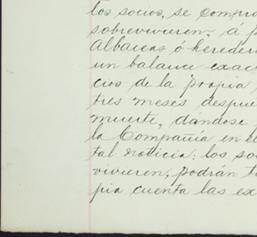 los socios, se compro
sobrevivieren, á p
Albaceas ó hereder
un balance exac
cios de la propia
tres meses despue
muerte, dandose
la Compañia en el
tal noticia; los soc
vivieren, podrán t
pia cuenta las ex